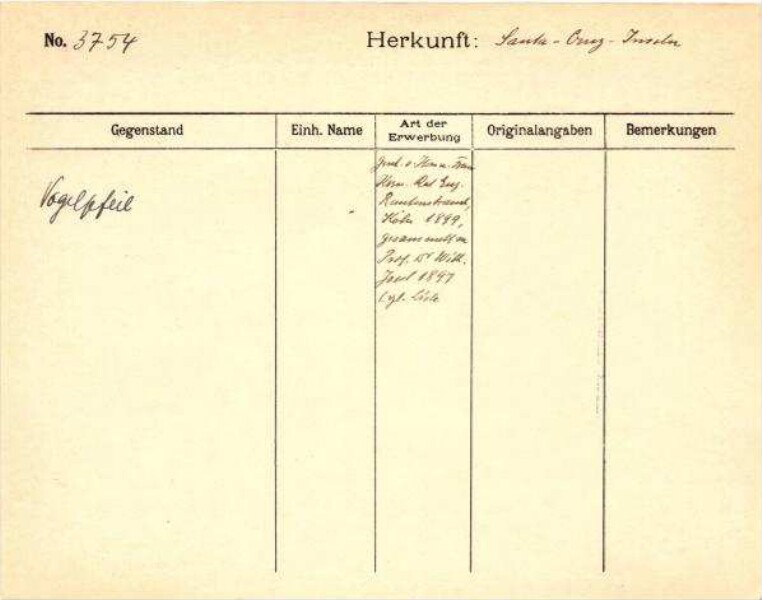 No. 3754
Herkunft: Santa-Cruz-Inseln
Gegenstand
Einh. Name
Art der
Erwerbung
Originalangaben
Bemerkungen
Vogelpfeil
Gesch. v. Herrn u. Frau
Rat Eug.
Rautenstrauch,
Köln 1899,
gesammelt von
Prof. Dr Wilh.
Joest 1897
vgl. Liste